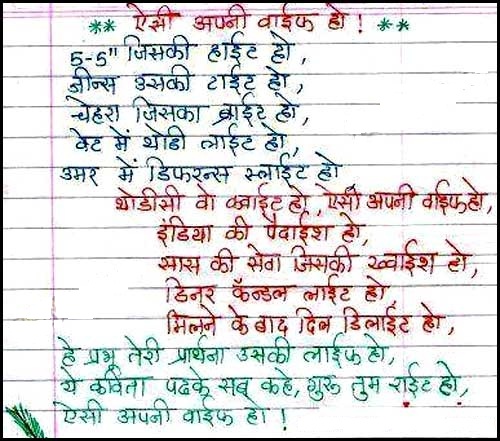 ** ऐसी अपनी वाईफ हो ! **
5-5" जिसकी हाईट हो,
जीन्स उसकी टाईट हो,
चेहरा जिसका ब्राईट हो,
वेट में थोडी लाईट हो,
उमर में डिफरन्स स्लाईट हो
थोडीसी वो क्वाईट हो, ऐसी अपनी वाईफ हो,
इंडिया की पैदाईश हो,
सास की सेवा जिसकी ख्वाईश हो,
डिनर कॅन्डल लाईट हो
मिलने के बाद दिल डिलाईट हो,
हे प्रभू तेरी प्रार्थना उसकी लाईफ हो,
ये कविता पढके सब कहे, गुरू तुम राईट हो,
ऐसी अपनी वाईफ हो !